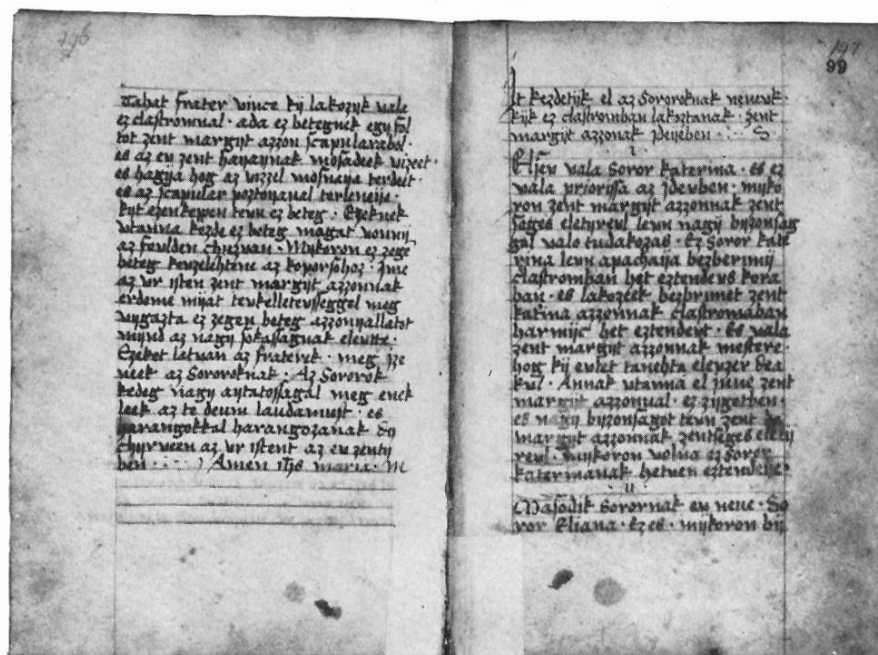 196
Tahat frater vince kij lakozijk vala
ez clastromnal · ada ez betegnek egij fol
tot zent margijt azzon scapularabol ·
es az ev zent hayaynak mosadek vizeet ·
es hagija hog az vizzel mosnaija terdeit ·
es az scapuler poztoijaual terleneije ·
kijt ezenkeppen teun ez beteg · Ezeknek
vtanna kezde ez beteg magat vonnij
az feulden chuzvan · Mijkoron ez zege
beteg keuzelehtene az koporsohoz · Ime
az vr isten zent margijt azzonnak
erdeme mijat teukelletesseggel meg
vijgazta ez zegen beteg azzonijallatot
mijnd az nagij sokassagnak eleutte ·
Ezeket latuan az fraterek · meg ize
neek az Sororoknak · Az Sororok
kedeg nagij aijtatossagal meg enek
leek az te deum laudamust · es
harangokkal harangozanak
chijrveen az vr istent az ev zentij
ben · Amen ihs maria · M
197
99
It kezdetijk el az Sororoknak nevek
kijk ez clastromban lakoztanak · zent
margijt azzonnak Ideijeben · S
i
Elsev vala Soror katerina · es ez
vala priorissa az Ideuben · mijko
ron zent margijt azzonnak zent
seges eletijreul leun nagij bijzonsag
gal valo tudakozas · Ez Soror kate
rina leun apachaija bezberimij
clastromban het eztendeus kora
ban · es lakozeek bezbrimet zent
katina azzonnak clastromaban
harmijc het eztendeut · Es vala
zent margijt azzonnak mestere
hog kij evtet tanehta eleuzer dea
kul · Annak vtanna el iuue zent
margijt azzonual · ez zijgetben ·
es nagij bijzonsagot teun zent
margijt azzonnak zentseges eletij
reul · mijkoron volna az Soror
katerinanak hetuen eztendeije ·
ii
Masodik Sorornak ev neue · So
ror Eliana · Ez es · mijkoron bij